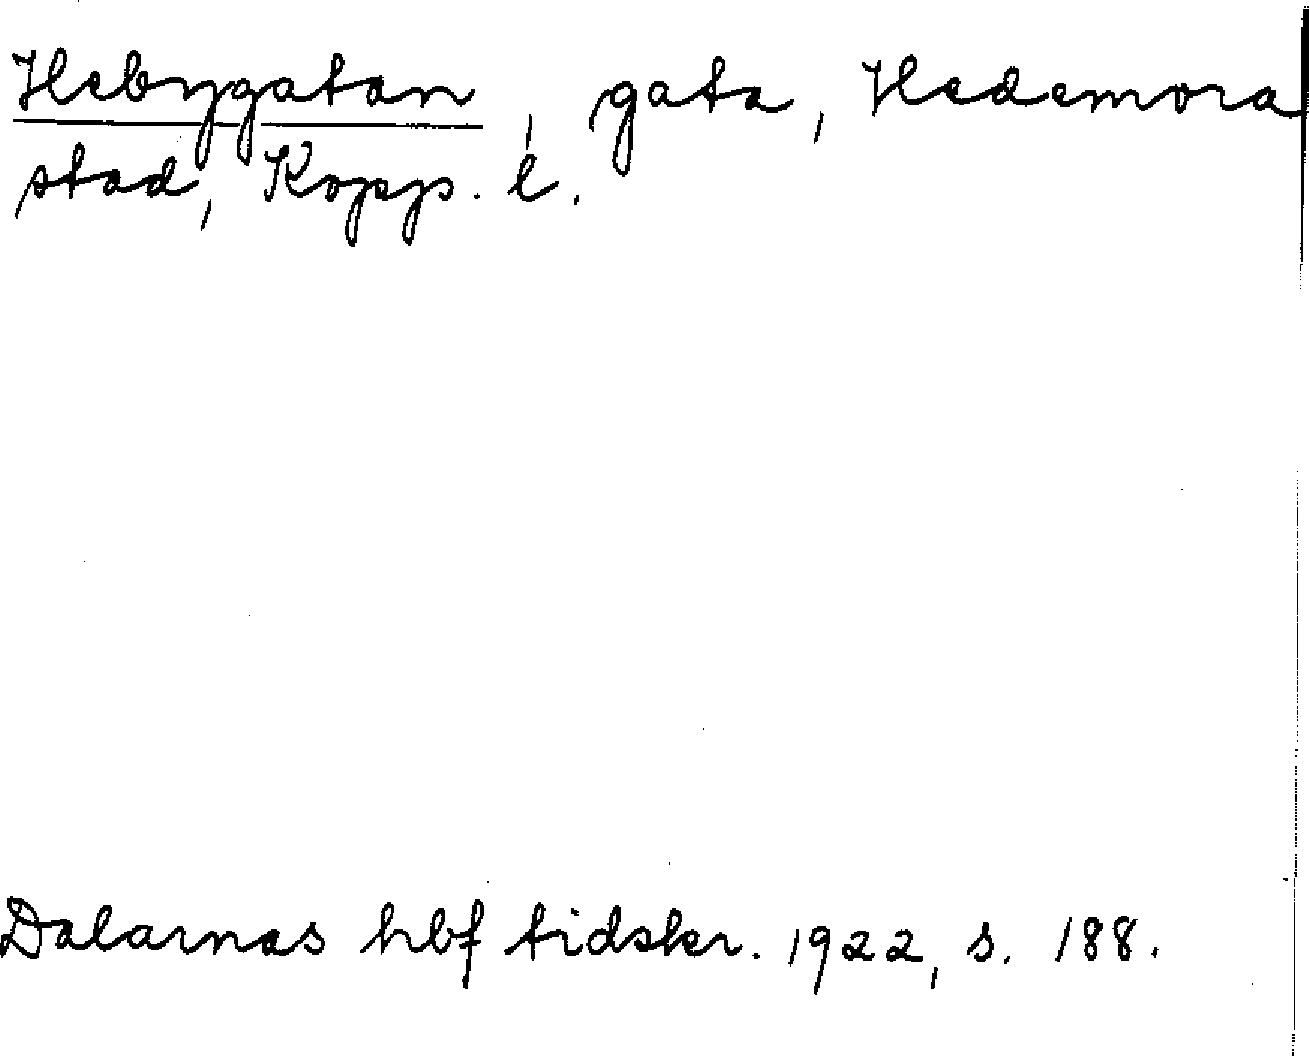 Hebygatan, gata, Hedemora
stad, Kopp. l.
Dalarnas hbf tidskr. 1922, s. 188.